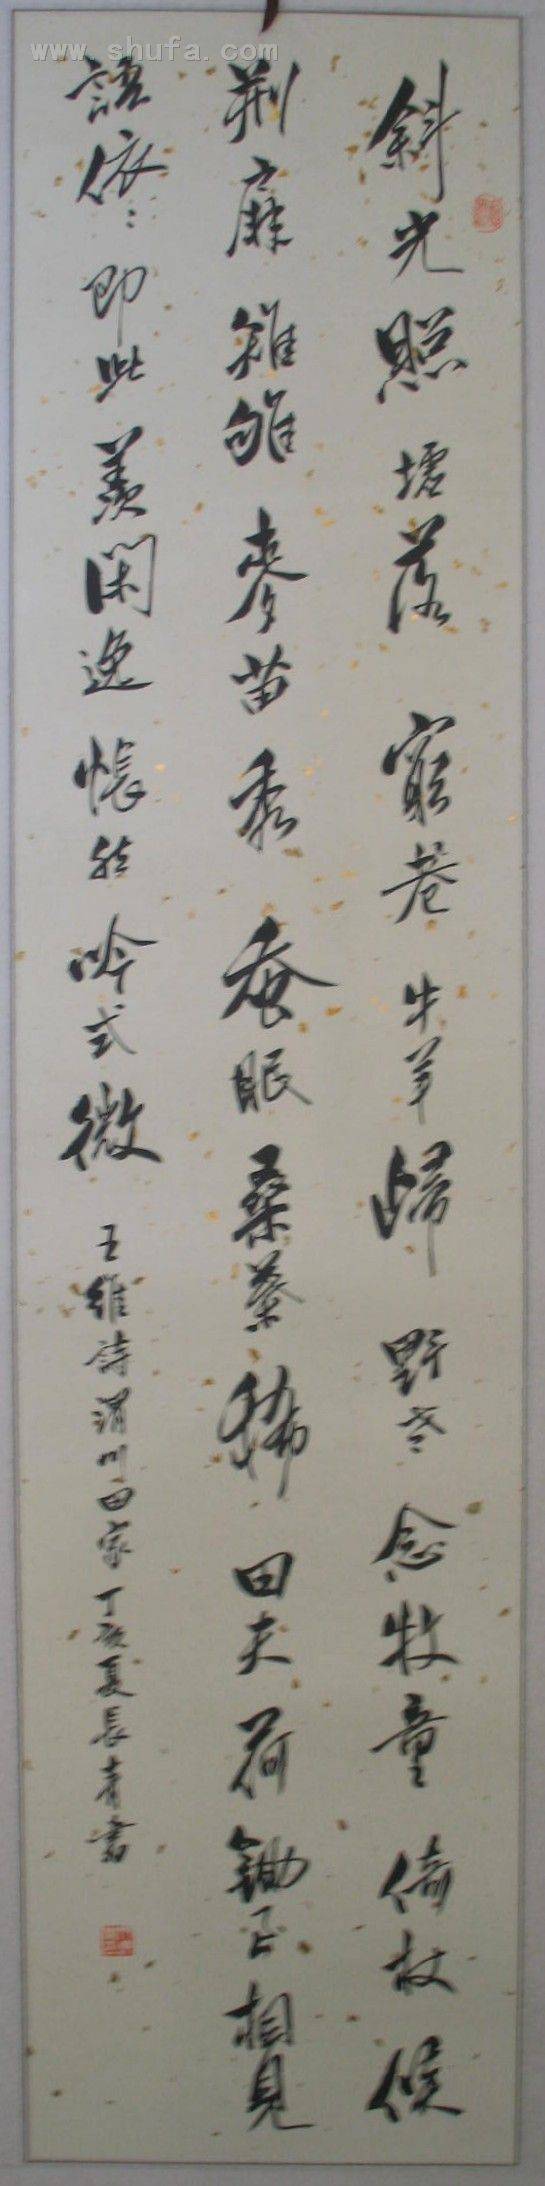 www.shufa.com
斜光照墟落窮巷牛羊歸野老念牧童倚杖候
荆扉雉雊麥苗秀蚕眠桑葉稀田夫荷鋤至相見
語依〻即此羡閑逸悵然吟式微王維詩渭川田家丁亥夏長青書